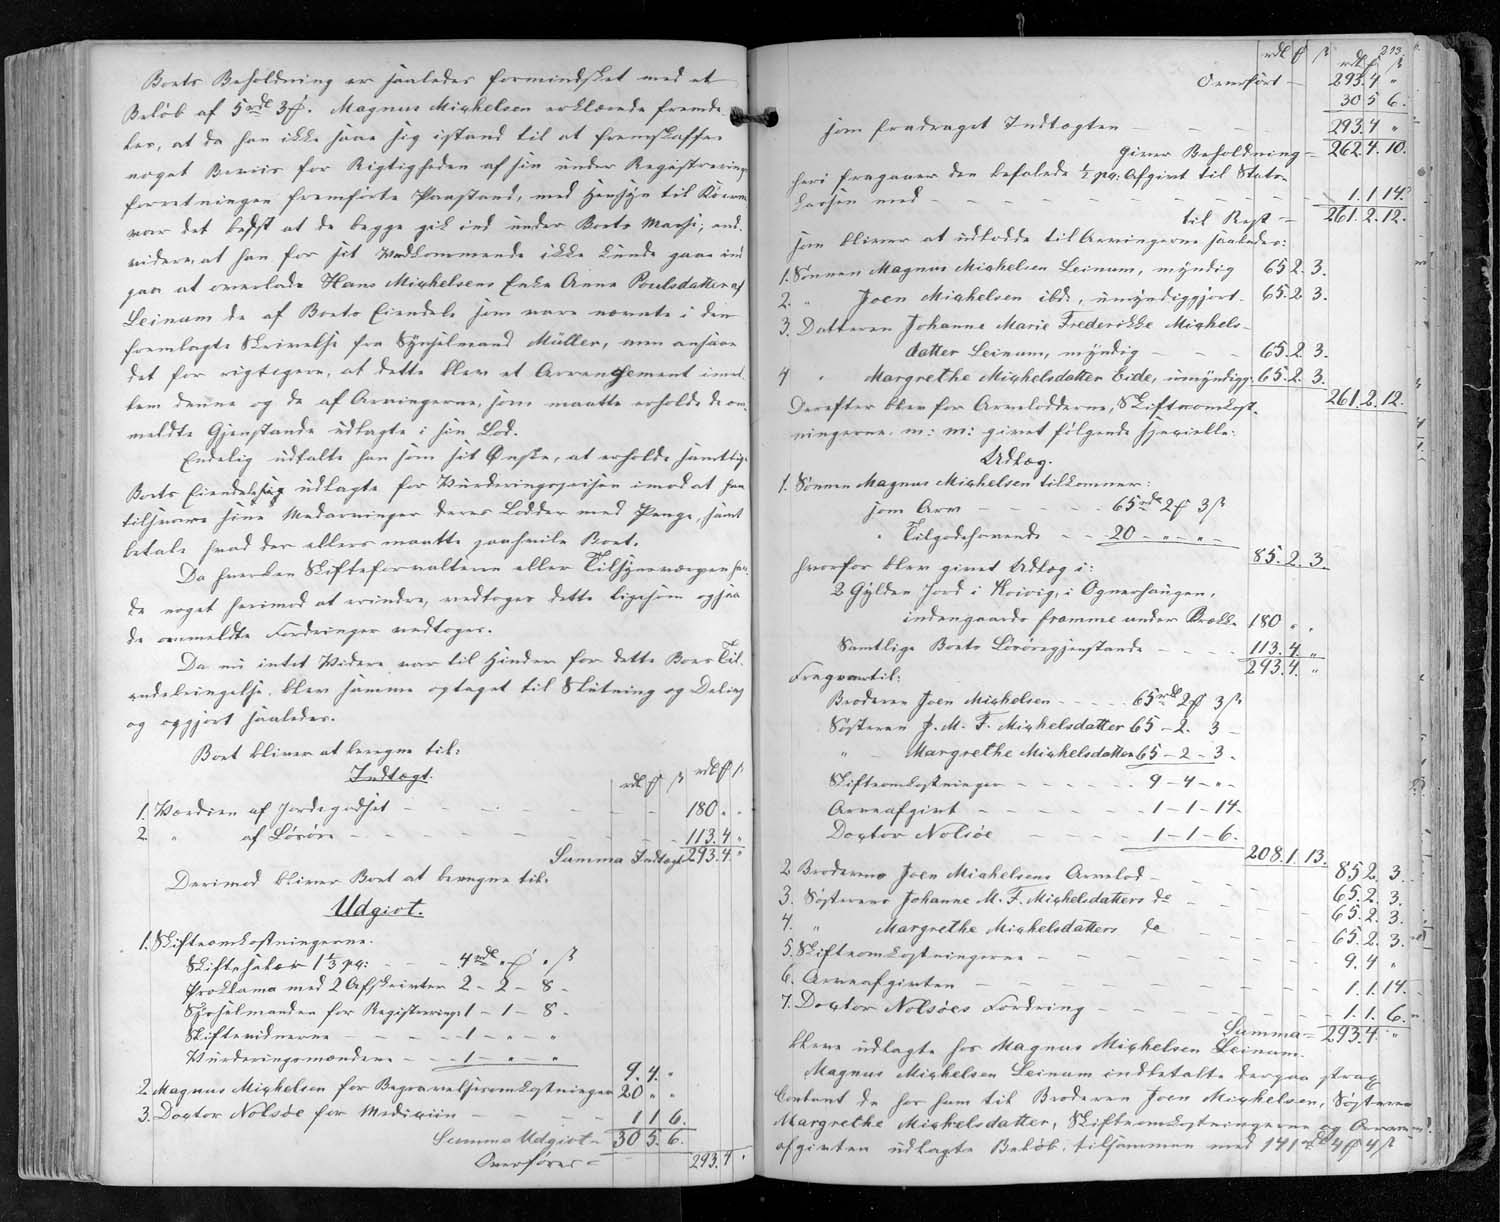 Boets Beholdning er saaledes formindsket med et
Beløb af 5 rdl 3 ₰. Magnus Mighelsen erklærede fremde-
les, at da han ikke saae sig istand til at fremskaffe
noget Beviis for Rigtigheden af sin under Registrerings
forretningen fremførte Paastand, med Hensyn til Køerne
var det bedst at de begge gik ind under Boets Masse; end-
videre, at han for sit Vedkommende ikke kunde gaae ind
paa at overlade Hans Mighelsens Enke Anne Poulsdatter af
Leinum de af Boets Eiendele som vare nævnte i den
fremlagte Skrivelse fra Sysselmand Müller, men ansaae
det for rigtigere, at dette blev et Arrangement imel-
lem denne og de af Arvingerne, som maatte erholde de om-
meldte Gjenstande udlagte i sin Lod.
Endelig udtalte han som sit Ønske, at erholde samtlige
Boets Eiendele sig udlagte for Vurderingsprisen imod at han
tilsvarer sine Medarvinger deres Lodder med Penge, samt
betale hvad der ellers maatte paahvile Boet.
Da hverken Skifteforvalteren eller Tilsynsværgen hav-
de noget herimod at erindre, vedtoges dette ligesom ogsaa
de anmeldte Fordringer vedtoges.
Da nu intet Videre var til Hinder for dette Boes Til-
endebringelse, blev samme optaget til Slutning og Deling
og opgjort saaledes.
Boet bliver at beregne til:
Indtægt. rdl ₰ ß rdl ₰ ß
1. Værdien af Jordegodset - - - 180 " "
2. " af Løsøre - - - 113.4 "
Summa Indtægt 293.4 "
Derimod bliver Boet at beregne til:
Udgivt.
1. Skifteomkostningerne.
Skiftesalær 1 1/3 pC: - - - 4 rdl " ₰ " ß
Proklama med 2 Afskrivter 2 - 2 - 8 -
Sysselmanden for Registrering 1 - 1 - 8 -
Skiftevidnerne - - - 1 - " - "
Vurderingsmændene - - - 1 - " - "
9.4. "
2. Magnus Mighelsen for Begravelsesomkostninger 20 " "
3. Doctor Nolsøe for Medicin - - - 1 1 6.
Summa Udgivt - 30 5 6.
Overføres - 293.4 "
213.
rdl ₰ ß rdl ₰ ß
Overført - 293.4 "
30 5 6.
som fradraget Indtægten - - - 293.4 "
giver Beholdning = 262.4.10.
heri fragaaer den befalede 1/2 pC: Afgivt til Stats-
kassen med - - - 1.1.14.
til Rest = 261.2.12.
som bliver at udlodde til Arvingerne saaledes:
1. Sønnen Magnus Mighelsen Leinum, myndig 65 2. 3.
2. " Joen Mighelsen ibd, umyndiggjort - 65.2 3.
3. Datteren Johanne Marie Frederikke Mighels-
datter Leinum, myndig - - - 65.2 3.
4 " Margrethe Mighelsdatter Eide, umyndigg. 65.2 3.
261.2.12.
Derefter blev for Arvelodderne, Skifteomkost-
ningerne m: m: givet følgende specielle:
Udlæg.
1. Sønnen Magnus Mighelsen tilkommer:
som Arv - - - 65 rdl 2 ₰ 3 ß
" Tilgodehavende - - 20 - " - " -
85.2.3.
hvorfor blev givet Udlæg i:
2 Gylden Jord i Kvivig, i Ognerhaugen,
indengaards framme under Brække 180 " "
Samtlige Boets Løsøregjenstande - - - 113.4. "
293.4. "
Fragaaer til:
Broderen Joen Mighelsen - - - 65 rdl 2 ₰ 3 ß
Søsteren J. M. F. Mighelsdatter 65 - 2. 3 -
" - Margrethe Mighelsdatter 65 - 2 - 3 -
Skifteomkostninger - - - 9 - 4 - " -
Arveafgivt - - - 1 - 1 - 14 -
Doctor Nolsøe - - - 1 - 1 - 6.
208.1.13.
85 2. 3.
2 Broderens Joen Mighelsens Arvelod - - - 65.2. 3.
3. Søsterens Johanne M. F. Mighelsdatters do - - - 65.2. 3.
4. " Margrethe Mighelsdatters do - - - 65.2. 3.
5. Skifteomkostningerne - - - 9.4 "
6. Arveafgivten - - - 1.1.14.
7. Doctor Nolsøes Fordring - - - 1.1. 6.
Summa = 293.4. "
bleve udlagte hos Magnus Mighelsen Leinum.
Magnus Mighelsen Leinum indbetalte derpaa strax
Contant de hos ham til Broderen Joen Mighelsen, Søsteren
Margrethe Mighelsdatter, Skifteomkostningerne og Arve-
afgivten udlagte Beløb, tilsammen med 141 rdl 4 ₰ 4 ß